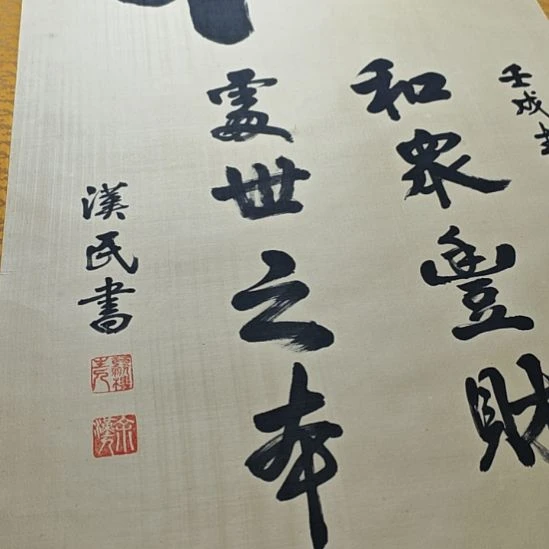 壬戌
和衆豐財
處世之本
漢民書